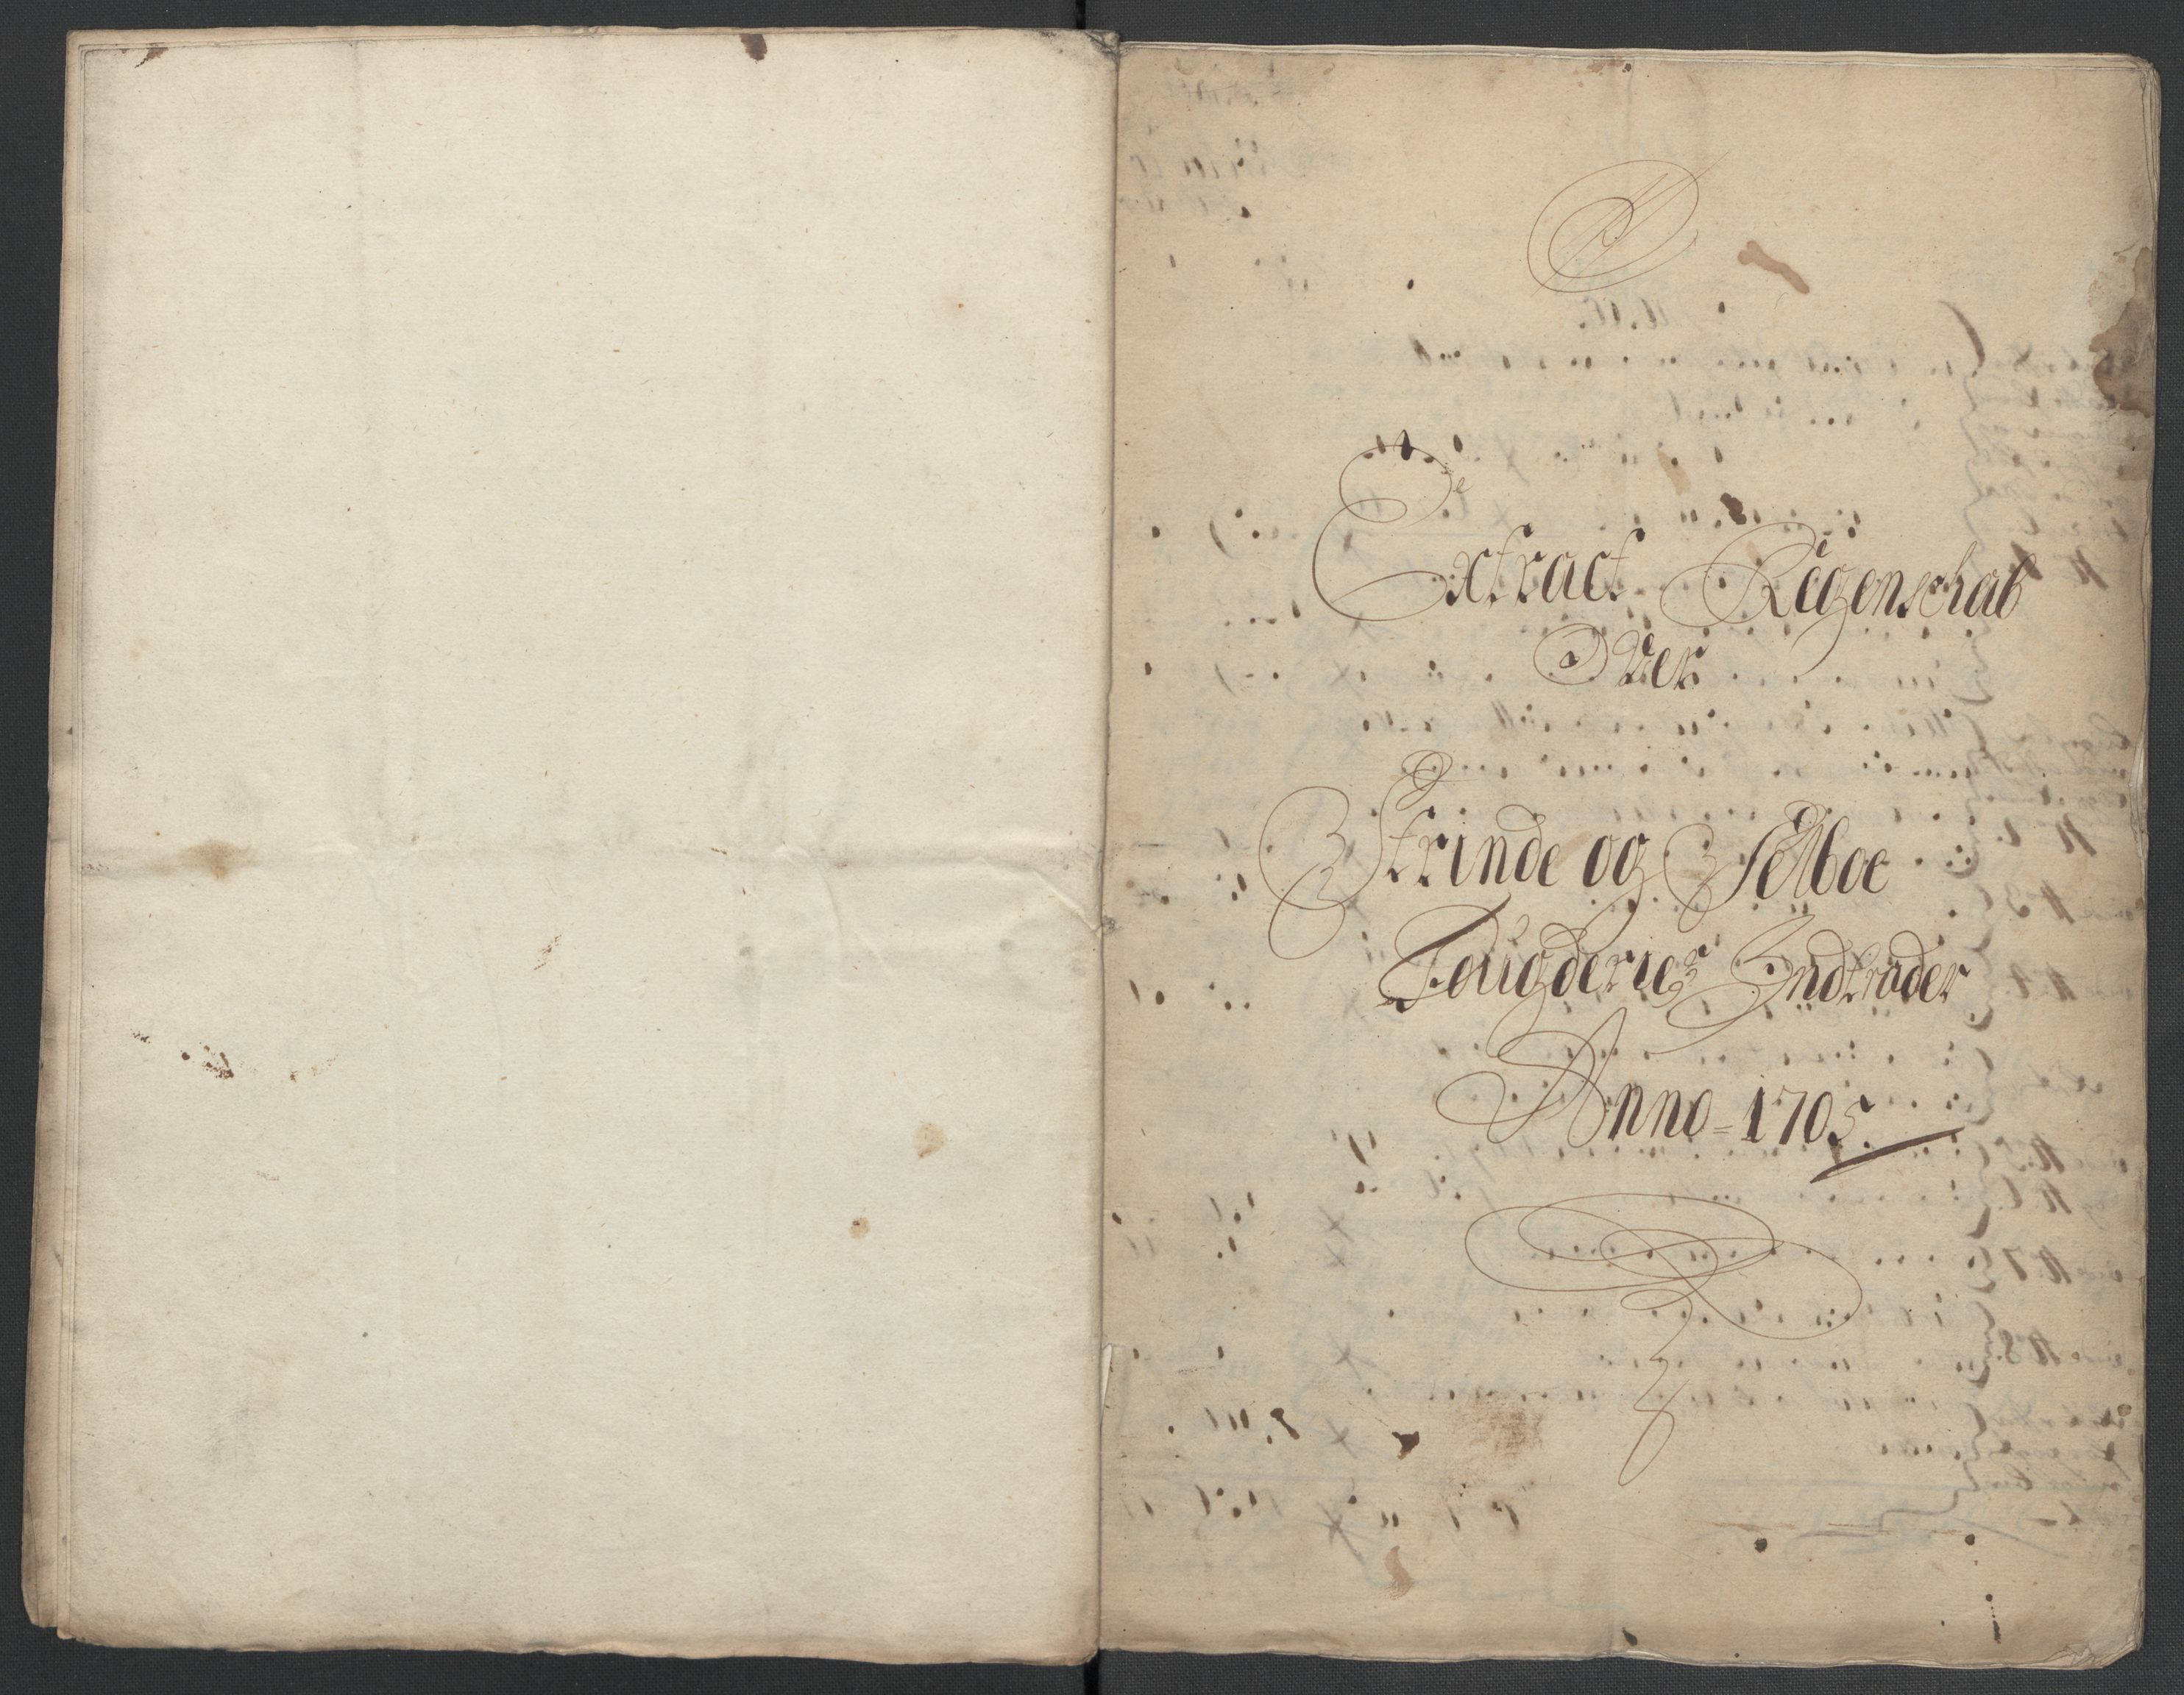 Extract Regenschab
Over
Strinde og Selboe
Fougderiers Indtrader
Anno = 1705.